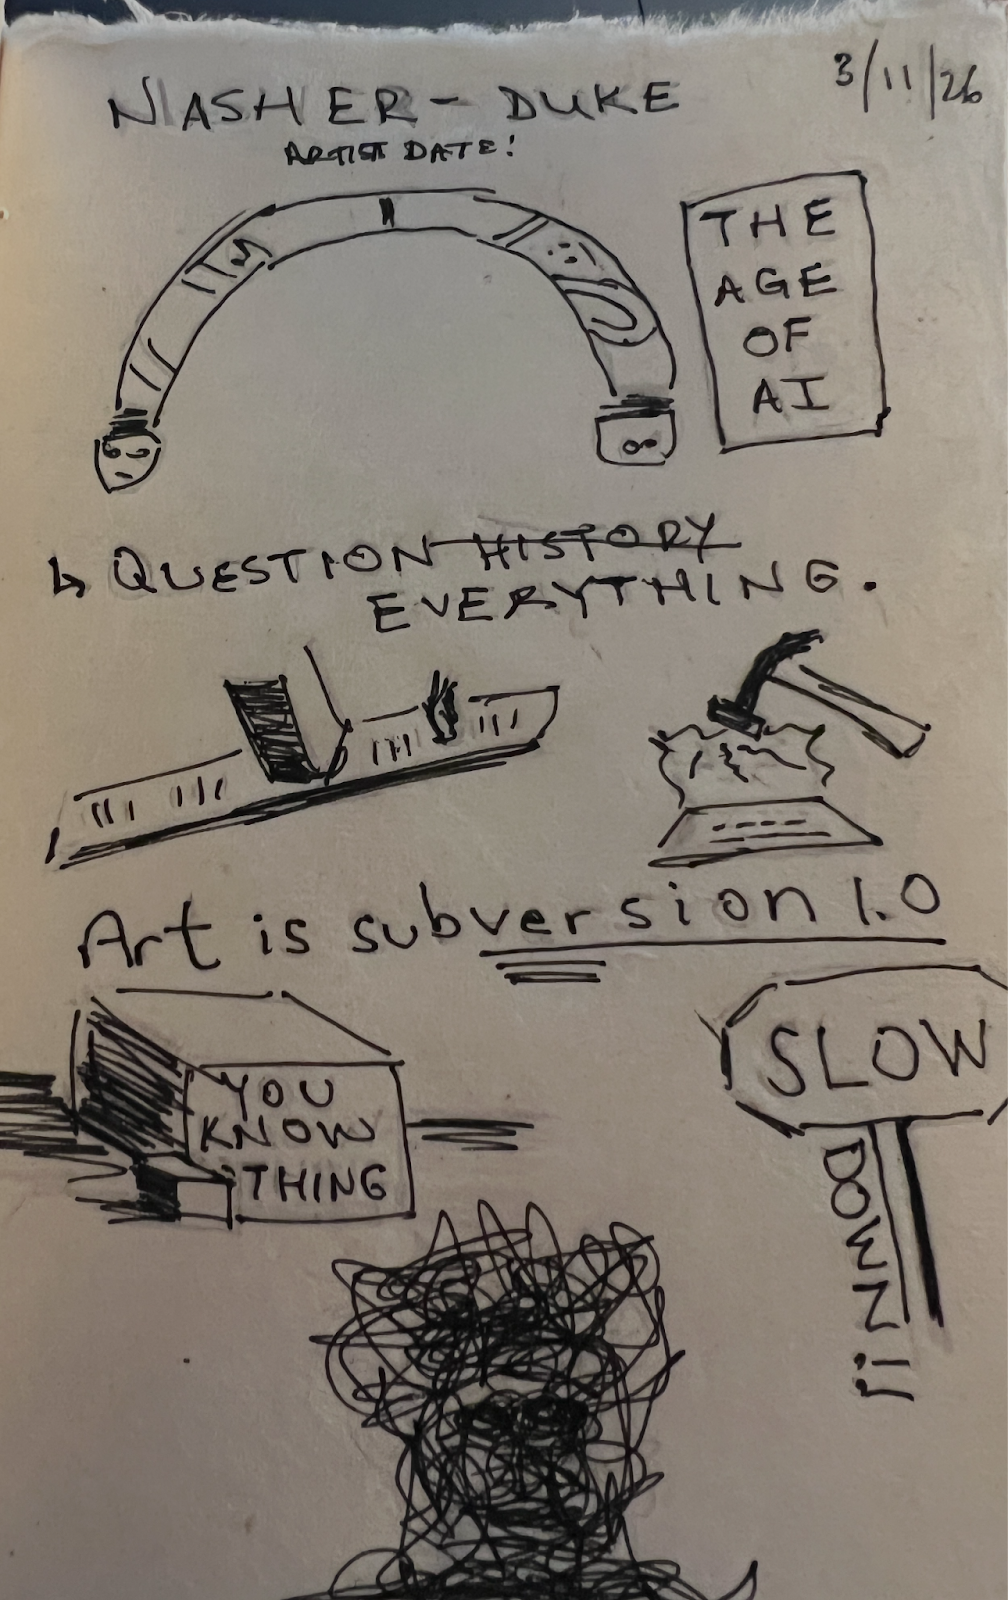 NASHER - DUKE
3/11/26
ARTIST DATE!
THE
AGE
OF
AI
↳ QUESTION HISTORY
EVERYTHING.
Art is subversion 1.0
YOU
KNOW
THING
SLOW
DOWN!!